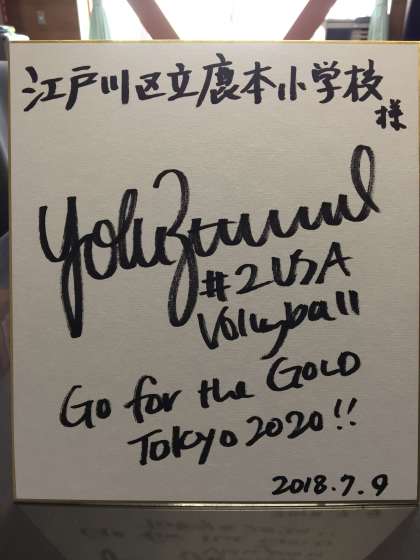 江戸川区立鹿本小学校
様
#2 USA
Volleyball
Go for the GOLD
Tokyo 2020!!
2018.7.9